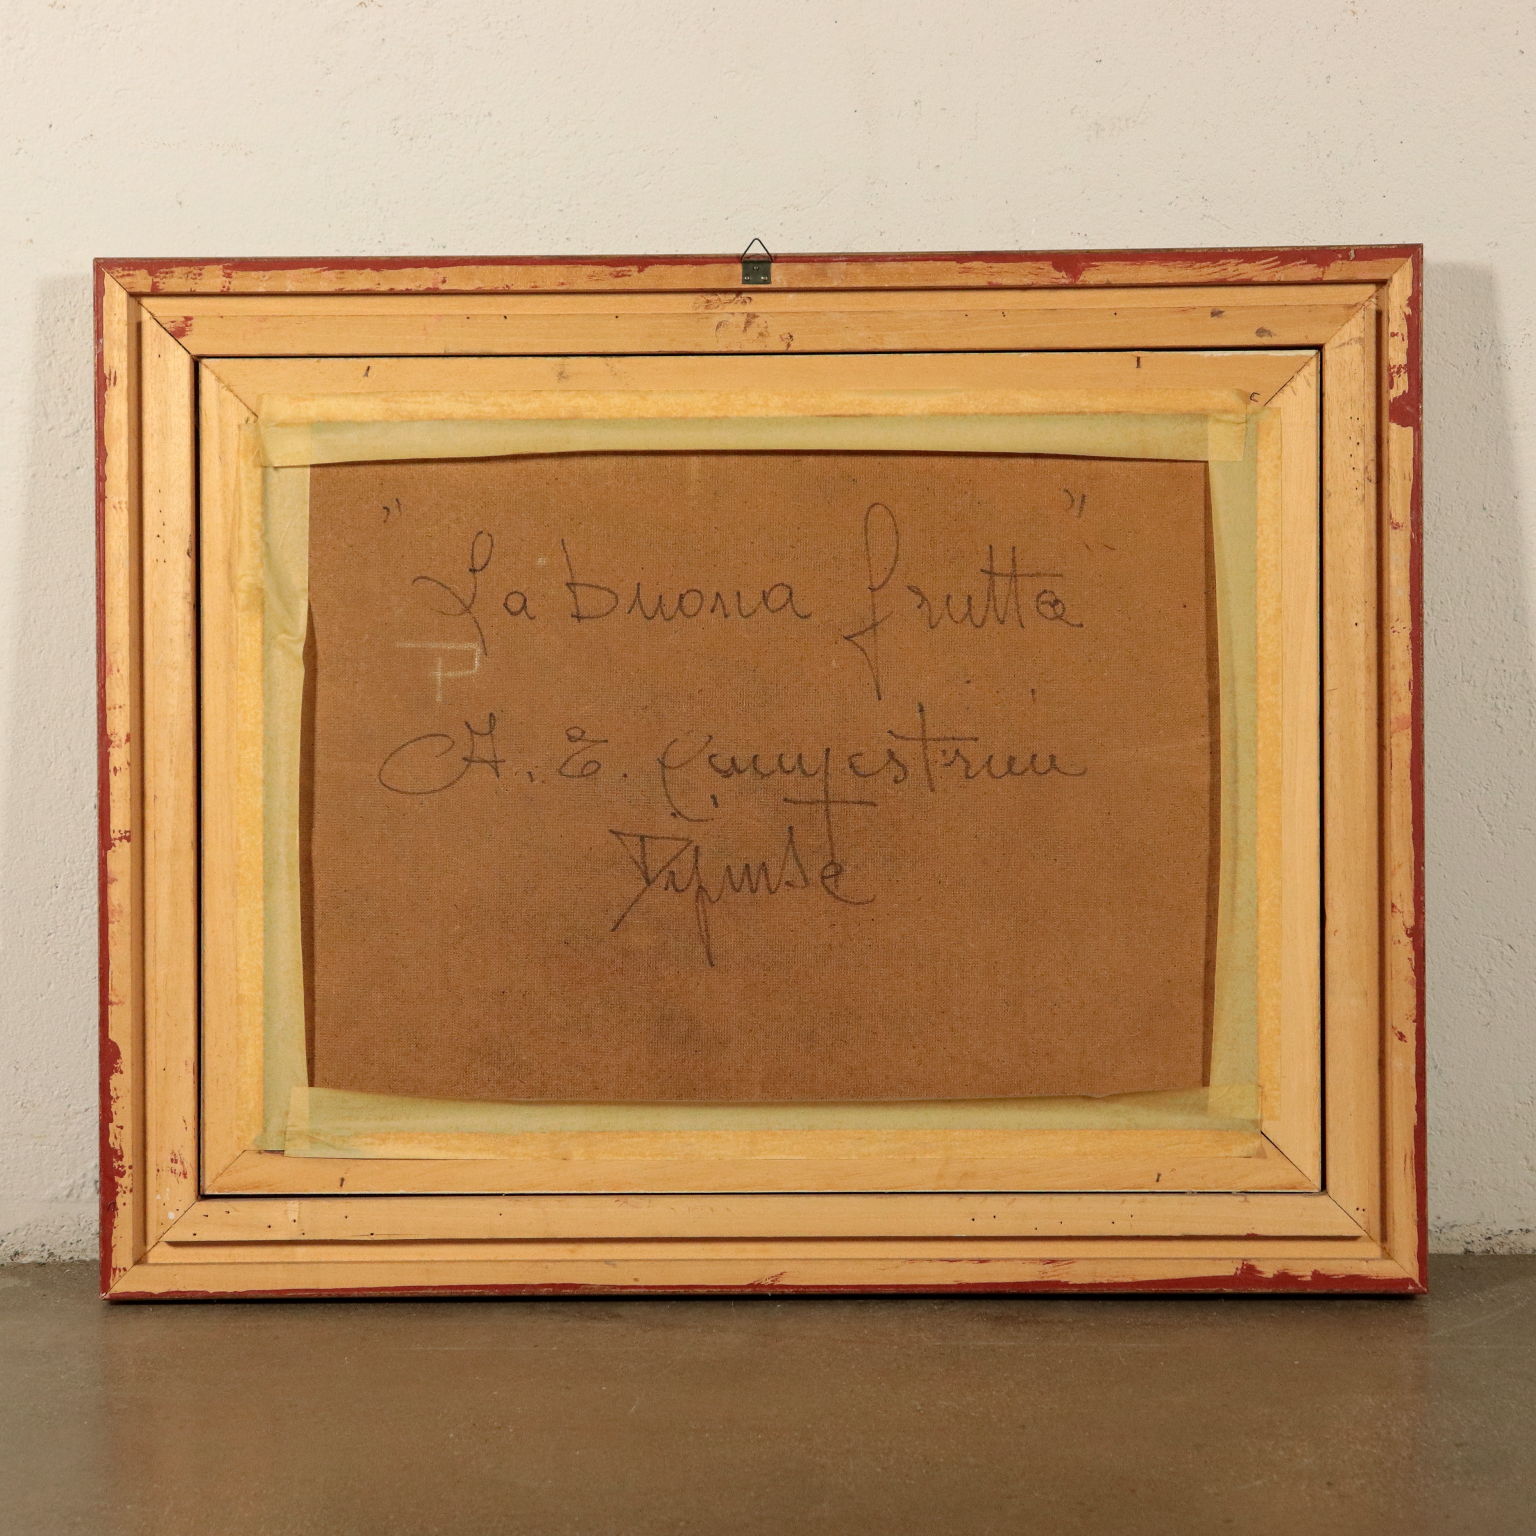 "La buona frutta"
P
A. E. Campestrini
Dipinse